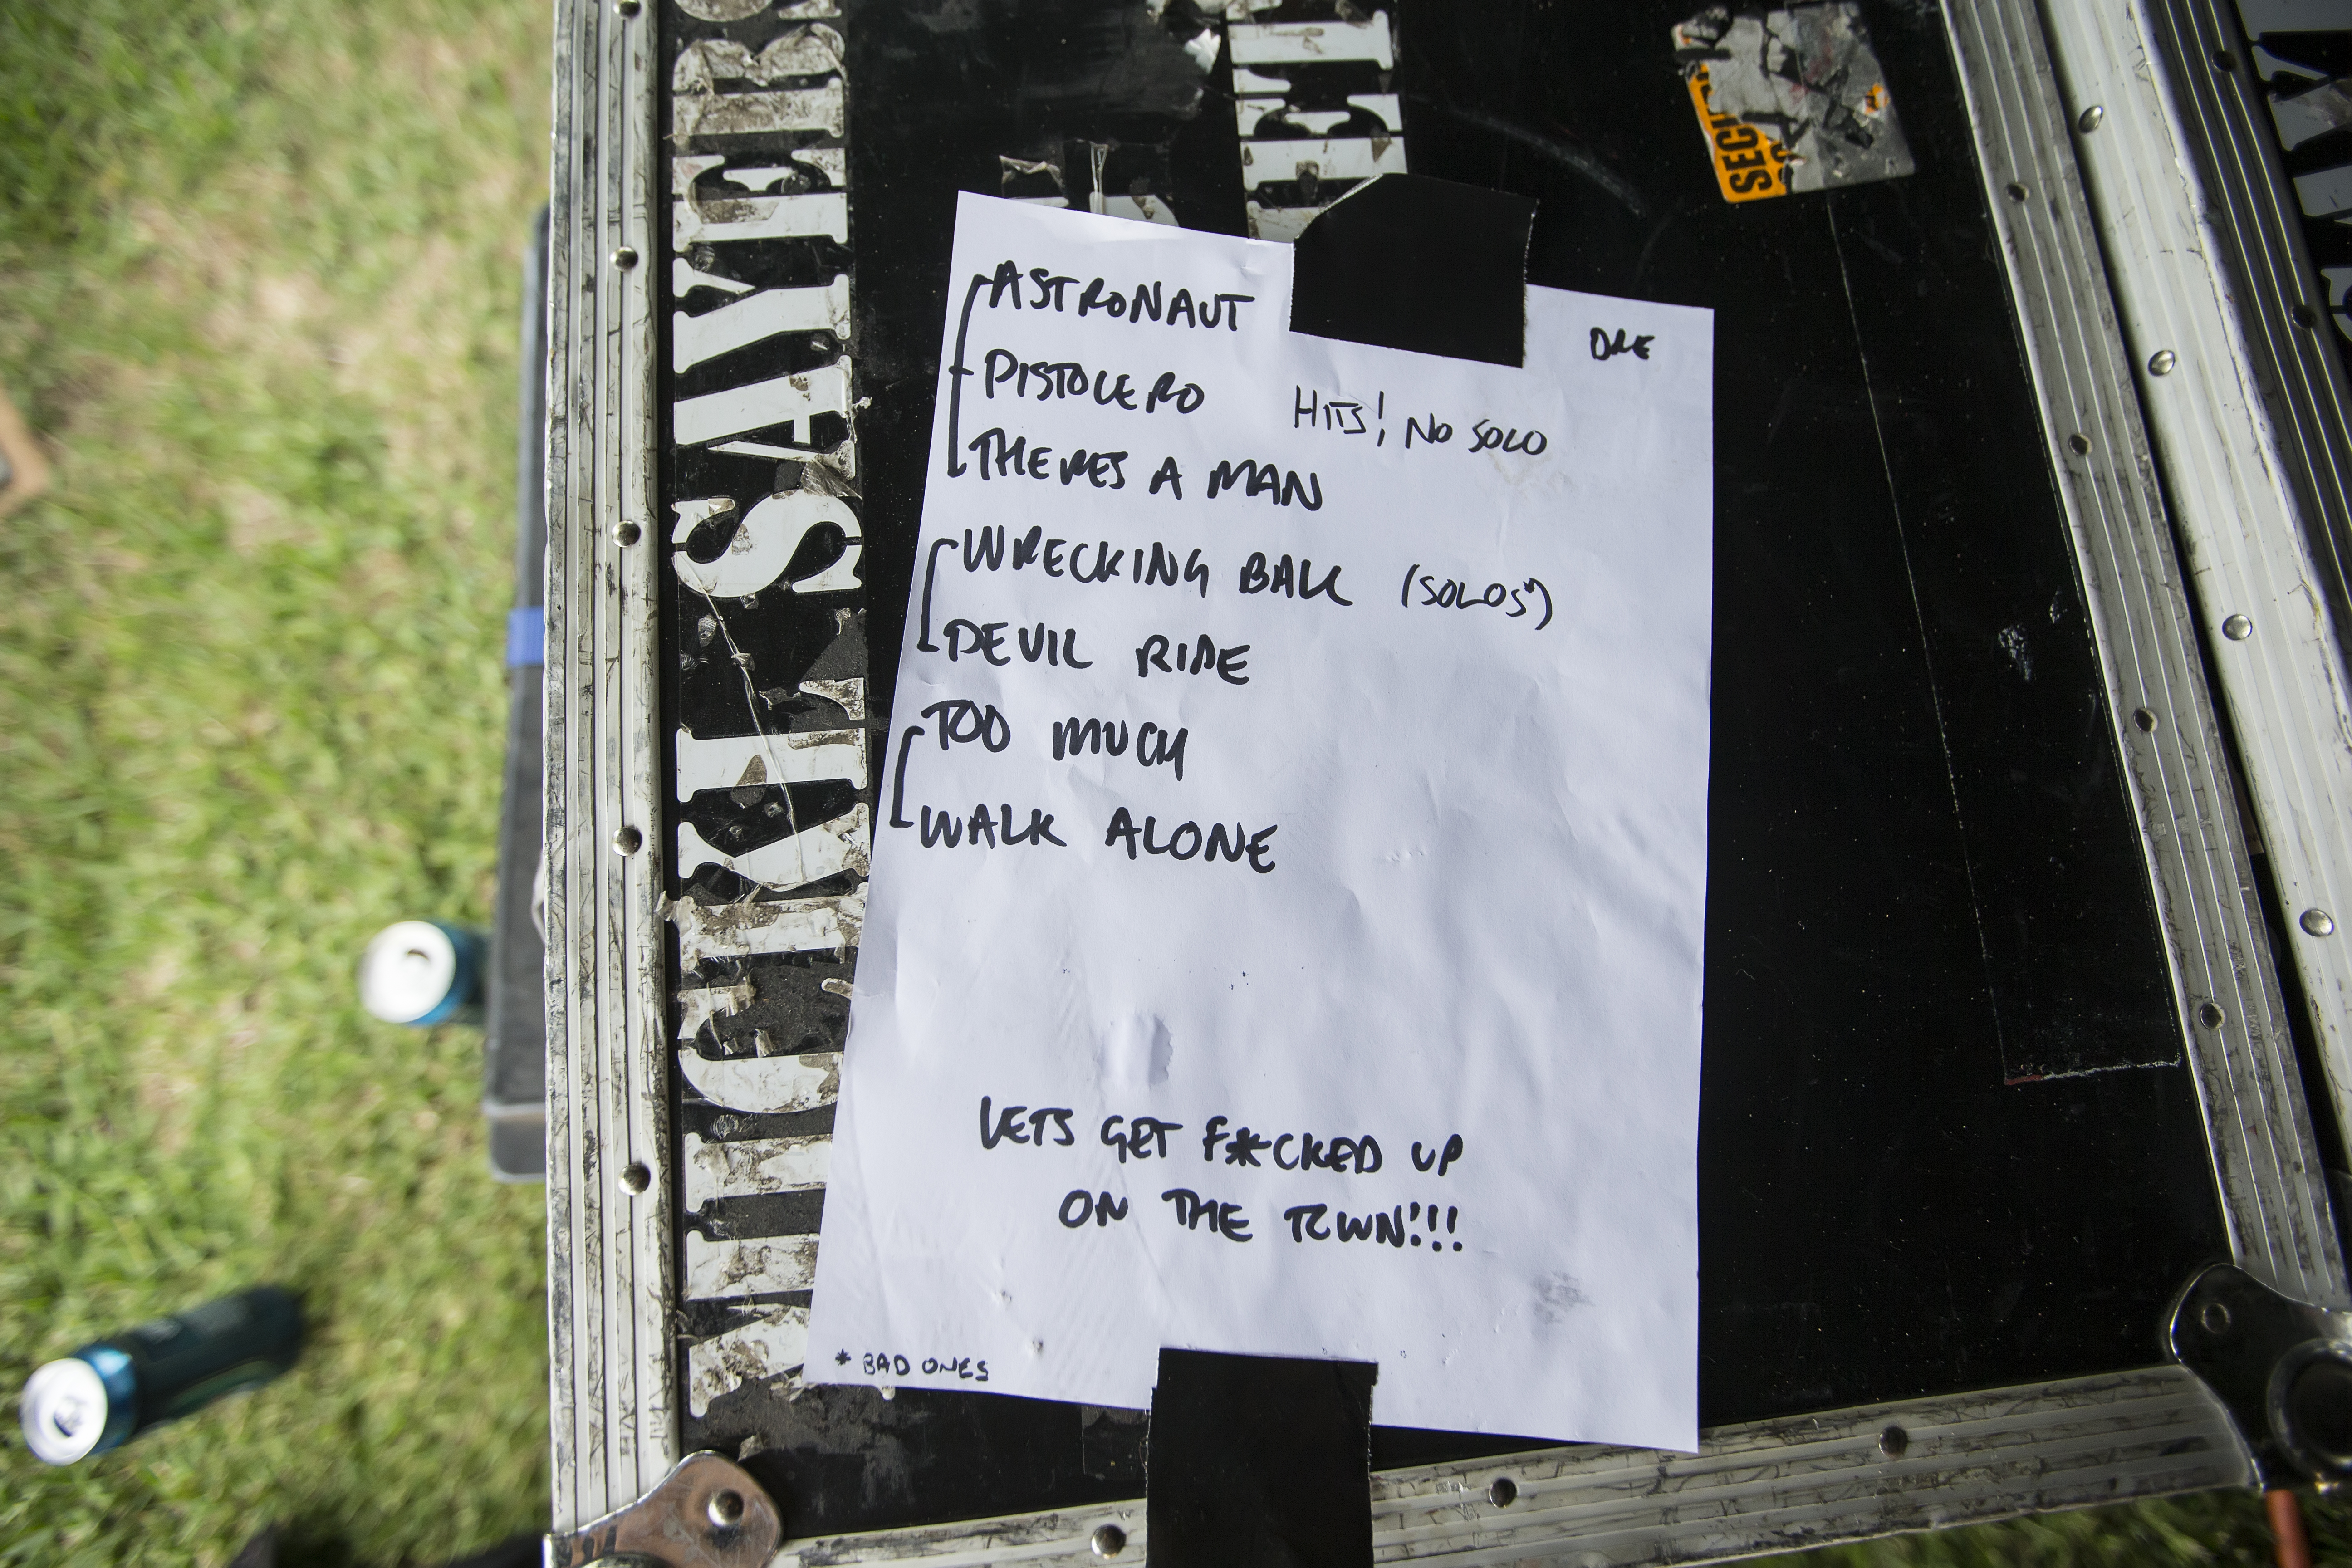 DRE
ASTRONAUT
PISTOLERO HITS! NO SOLO
THERES A MAN
WRECKING BALL (SOLOS*)
DEVIL RIDE
TOO MUCH
WALK ALONE
LETS GET F*CKED UP
ON THE TOWN!!!
* BAD ONES